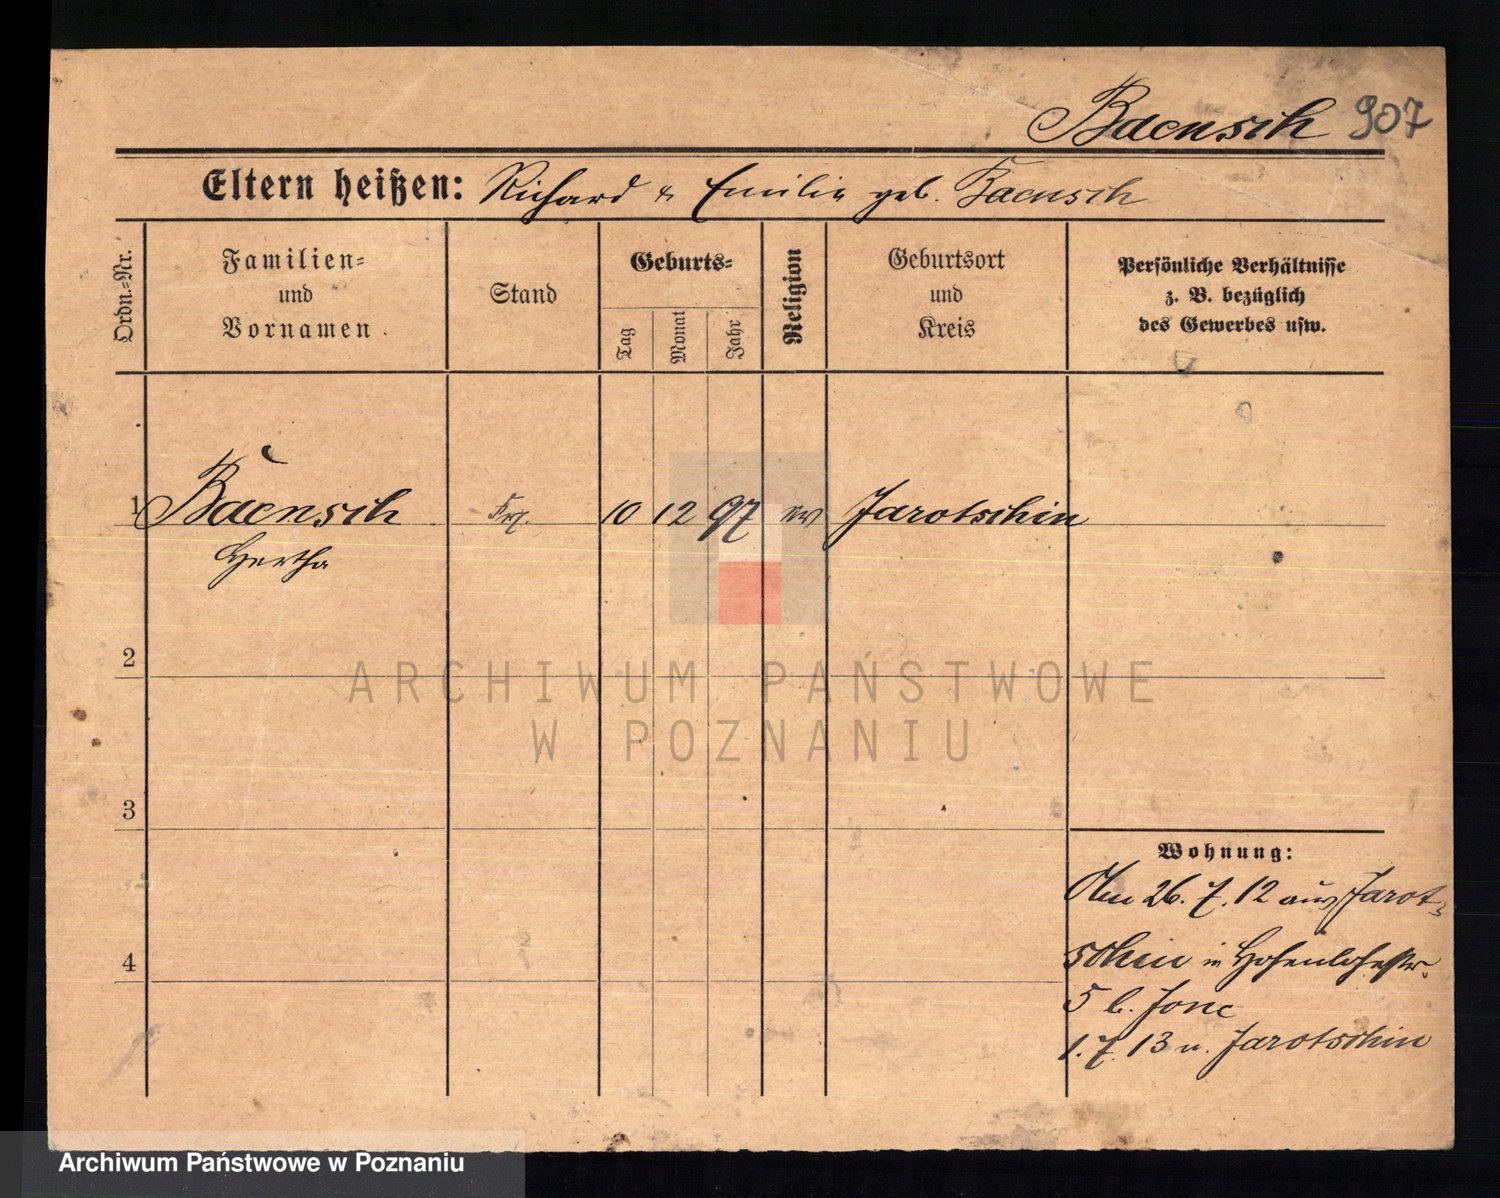 Baensch 907
Eltern heißen: Richard & Emilie geb. Baensch
Ordn.-Nr.
Familien-
und
Vornamen.
Stand
Geburts-
Tag
Monat
Jahr
Religion
Geburtsort
und
Kreis
Persönliche Verhältnisse
z. B. bezüglich
des Gewerbes usw.
1 Baensch Frl. 10 12 97 ev Jarotschin
Hertha
2
3
4
Wohnung:
Am 26. 7. 12 aus Jarot-
schin in Hohenlohestr.
5 b. Jone
1. 7. 13 n. Jarotschin
ARCHIWUM PAŃSTWOWE
W POZNANIU
Archiwum Państwowe w Poznaniu